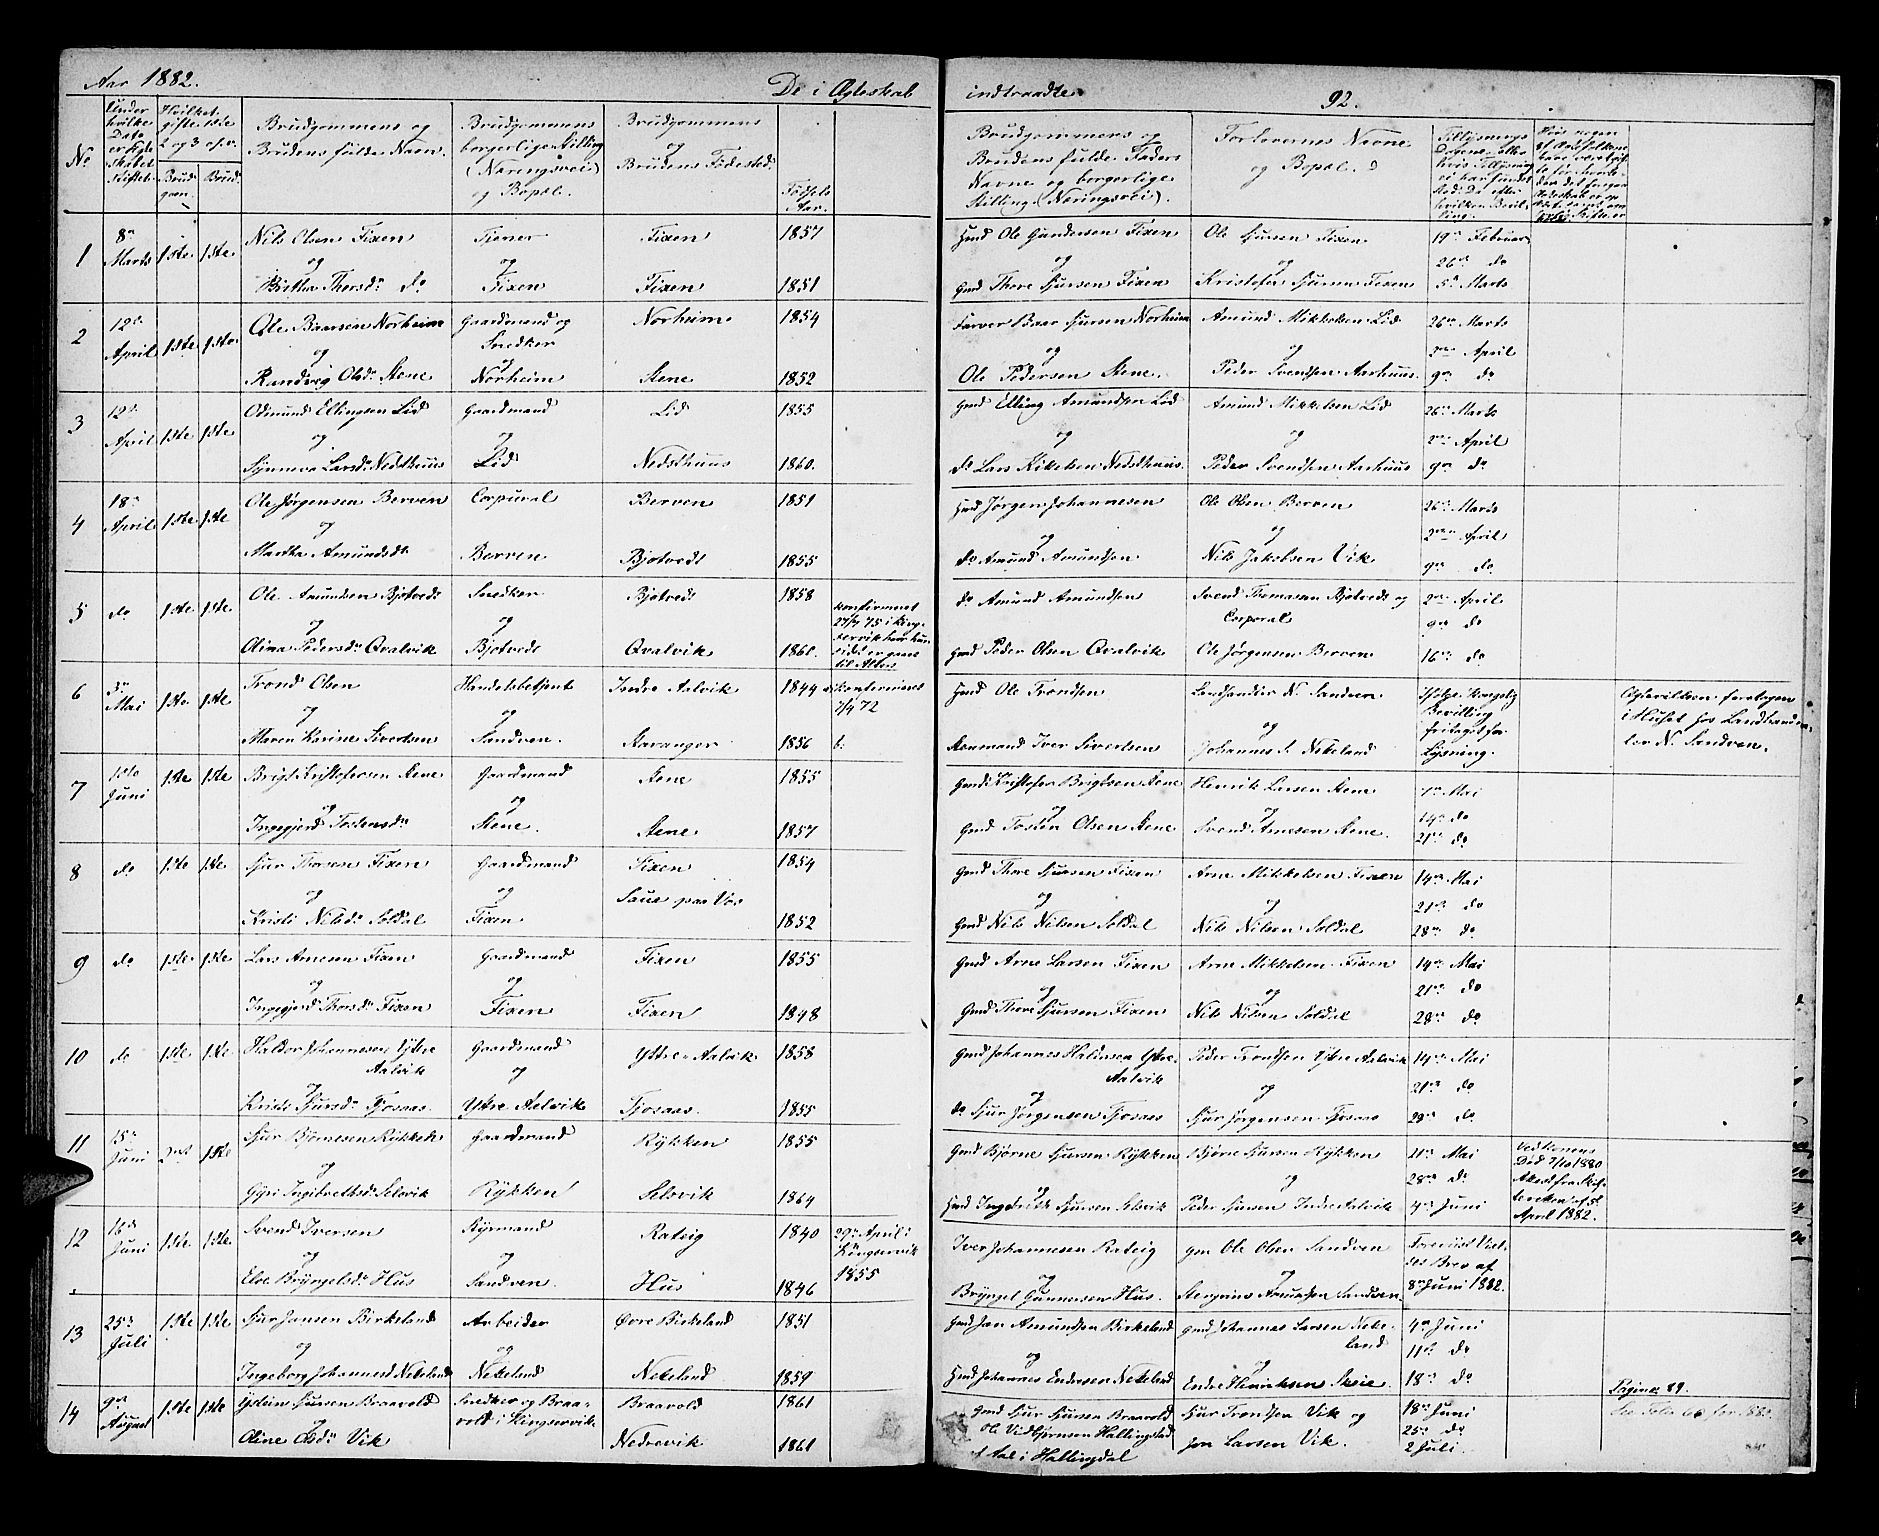 Aar 1882.
De i Ægteskab
indtraadte.
92.
No
Under hvilke Dato er Egteskabet stiftet
Hvilket gifte 1ste 2 og 3 o.s.v.
Brudgom.
Brud.
Brudgommens og Brudens fulde Navn.
Brudgommens borgerlige Stilling (Næringsvei) og Bopæl.
Brudgommens og Brudens Fødested.
Fødsels Aar.
Brudgommens og Brudens fulde Faders Navne og borgerlige Stilling (Næringsvei).
Forlovernes Navne og Bopæl.
1
8de Marts
1ste
1ste
Nils Olsen Fixen
og
Birtha Thorsdr do
Tjener
og
Fixen
Fixen
Fixen
1857
1851
Gmd Ole Gundersen Fixen
og
Gmd Thore Sjursen Fixen
Ole Sjursen Fixen
og
Kristofer Sjursen Fixen
19de Februar
26de do
5te Marts
2
12te April
1ste
1ste
Ole Baarsen Norheim
og
Randveig Olsdr Stene
Gaardmand og Snedker
og
Norheim
Norheim
Stene
1854
1852
Farver Baar Sjursen Norheim
og
Ole Pedersen Stene.
Amund Mikkelsen Lid
og
Peder Svendsen Aarhuus.
26de Marts
2den April
9de do
3
12te April
1ste
1ste
Odmund Ellingsen Lid
og
Synneva Larsdr Nedsthuus
Gaardmand
og
Lid
Lid
Nedsthuus
1855
1860.
Gmd Elling Amundsen Lid
og
do Lars Kikelsen Nedsthuus.
Amund Mikkelsen Lid
og
Peder Svendsen Aarhuus
26de Marts
2den April
9de do
4
18de April
1ste
1ste
Ole Jørgensen Berven
og
Martha Amundsdr
Corpural
Berven
Berven
Bjotvedt
1851
1855
Gmd Jørgen Johannesen
og
do Amund Amundsen
Ole Olsen Berven
og
Nils Jakobsen Vik
26de Marts
2den April
9de do
5
do
1ste
1ste
Ole Amundsen Bjotvedt
og
Olina Pedersdr Qvalvik
Snedker
og
Bjotvedt
Bjotvedt
Qvalvik
1858
1860.
do Amund Amundsen
og
Gmd Peder Olsen Qvalvik
Svend Thomassen Bjotvedt og
Corporal
Ole Jørgensen Berven
2den April
9de do
16de do
6
3de Mai
1ste
1ste
Trond Olsen
og
Maren Karine Sivertsen
Handelsbetjent
og
Sandven.
Indre Aalvik
Stavanger
1844
1856
konfirmeret
7/4 72
b:
Gmd Ole Trondsen
Iver Sivertsen
Landhandler N. Sandven
og
Johannes S. Nekeland
Ifølge Kongelig
Bevilling
fritaget for
Lysning.
Egtevielsen foretagen
i Huset hos Landhand
ler N. Sandven.
7
1ste Juni
1ste
1ste
Brigt Kristofersen Stene
og
Ingegjerd Tostensdr
Gaardmand
og
Stene.
Stene
Stene
1855
1857
Gmd Kristofer Brigtsen Stene
og
Gmd Tosten Olsen Stene
Henrik Larsen Stene
og
Svend Arnesen Stene.
7de Mai
14de do
21de do
8
do
1ste
1ste
Sjur Thorsen Fixen
og
Kristi Nilsdr Soldal
Gaardmand
og
Fixen
Fixen
Saue paa Vos
1854
1852
Gmd Thore Sjursen Fixen
og
Gmd Nils Nilsen Soldal
Arne Mikkelsen Fixen
og
Nils Nilsen Soldal
14de Mai
21de do
28de do
9
do
1ste
1ste
Lars Arnesen Fixen
og
Ingegjerd Thorsdr Fixen
Gaardmand
og
Fixen
Fixen
Fixen
1855
1848
Gmd Arne Larsen Fixen
og
Gmd Thore Sjursen Fixen
Arne Mikkelsen Fixen
og
Nils Nilsen Soldal
14de Mai
21de do
28de do
10
do
1ste
1ste
Haldor Johannesen Ystre
Aalvik
og
Kristi Sjursdr Fjosaas.
Gaardmand
og
Ystre Aalvik
Ystre Aalvik
Fjosaas.
1858
1855
Gmd Johannes Haldorsen Ystre
Aalvik
og
do Sjur Jørgensen Fjosaas
Peder Trondsen Ystre Aalvik
og
Sjur Jørgensen Fjosaas
14de Mai
21de do
28de do
11
15de Juni
2det
1ste
Sjur Bjørnesen Rykken
og
Gyri Ingebrethsdr Selsvik
Gaardmand
Rykken
Rykken
Selsvik
1855
1864
Gmd Bjørne Sjursen Rykken
og
Gmd Ingebrikt Sjursen Selsvik
Bjørne Sjursen Rykken
og
Peder Sjursen Indre Aalvik
21de Mai
28de do
4de Juni
Ved Konens
Død 7/10 1880
April 1882.
12
16de Juni
1ste
1ste
Svend Iversen
og
Else Bryngelsdr Hus
og
Sandven.
Ratvig
Hus
1840
1846
29de April i
Kingservik
1855
Iver Johannesen Ratvig
og
Bryngel Gunnarsen Hus.
Ole Olsen Sandven
og
Amundsen Sandven
Brev af
8de Juni 1882.
13
25de Juli
1ste
1ste
Sjur Jansen Birkeland
og
Ingeborg Johannesd Nekeland
Arbeider
og
Nekeland
Øvre Birkeland
Nekeland
1851
1859
Gmd Jan Amundsen Birkeland
og
Gmd Johannes Endresen Nekeland
Gmd Johannes Larsen Neke-
land
og
Endre Henriksen Skeie.
4de Juni
11te do
18de do
14
9de August
1ste
1ste
Øystein Sjursen Braavold
og
Oline Olsdr Vik
Snedker og Braa-
vold i Kingservik.
Braavold
Nedrevik
1861
1861
Gmd Sjur Sjursen Braavold
Ole Vidtsjørnsen Hallingstad
af Aal i Hallingdal
Sjur Trondsen Vik og
Jon Larsen Vik.
18de Juni
25de do
2 Juli.
Pagina 89.